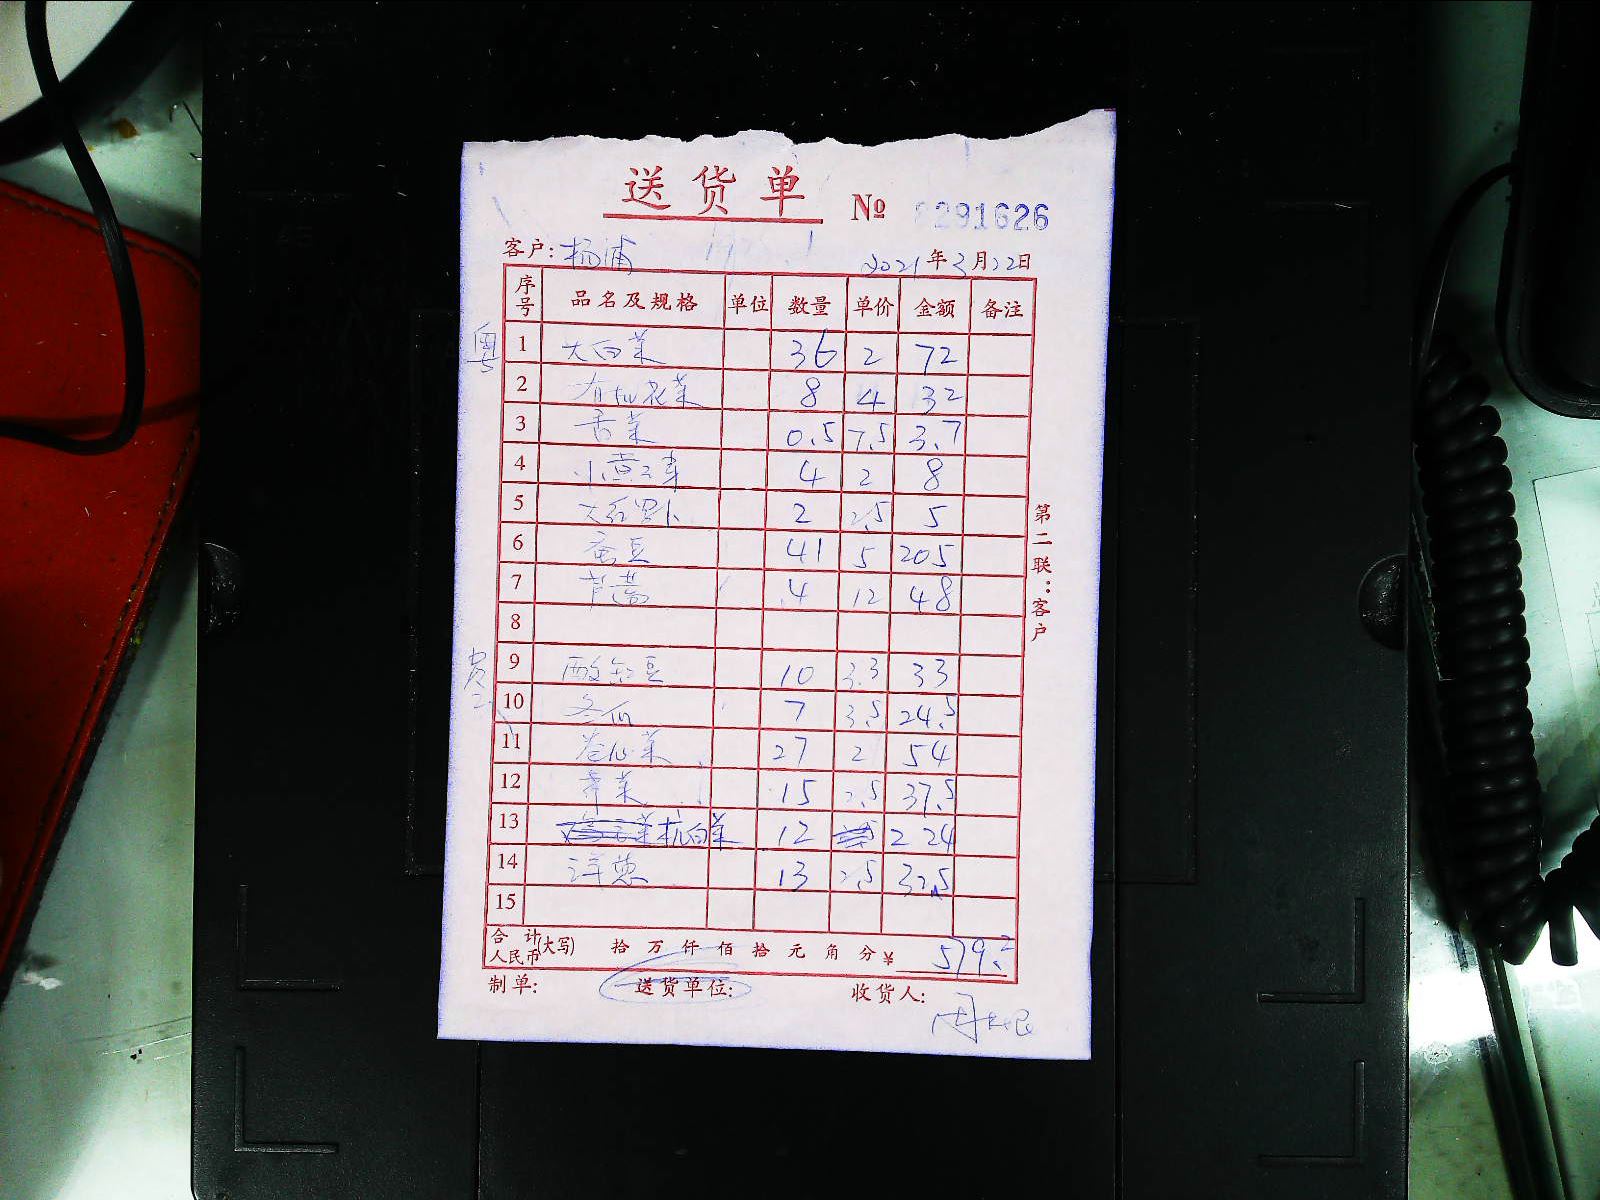 送货单 № 8291626
客户: 杨浦 2021年3月22日
序号 品名及规格 单位 数量 单价 金额 备注
粤
1 大白菜 36 2 72
2 有机花菜 8 4 32
3 香菜 0.5 7.5 3.7
4 4 2 8
5 大红萝卜 2 2.5 5
6 蚕豆 41 5 205
7 芦蒿 4 12 48
8
9 酸豇豆 10 3.3 33
10 冬瓜 7 3.5 24.5
11 卷心菜 27 2 54
12 芹菜 15 2.5 37.5
13 杭白菜 12 2 24
14 洋葱 13 2.5 32.5
15
合计人民币(大写) 拾 万 仟 佰 拾 元 角 分 ¥ 579.2
制单: 送货单位: 收货人:
第二联:客户